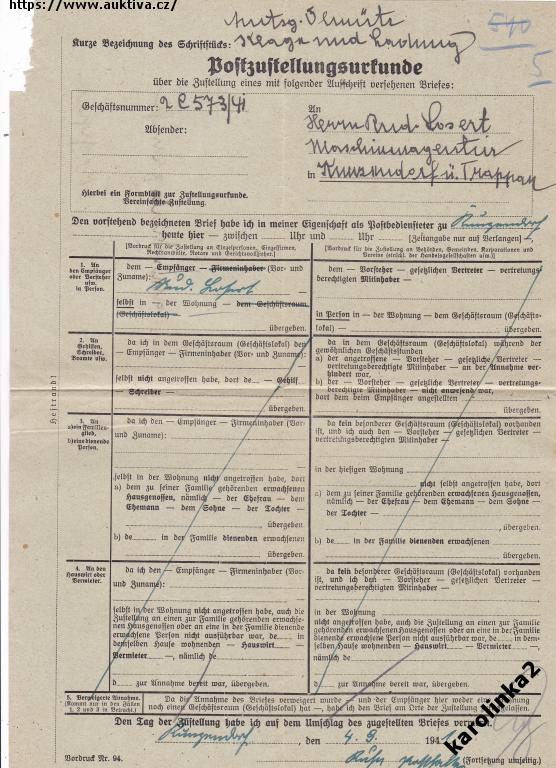 https://www.auktiva.cz/
Amtsg. Olmütz
Kurze Bezeichnung des Schriftstücks: Klage und Ladung
540
5
Postzustellungsurkunde
über die Zustellung eines mit folgender Aufschrift versehenen Briefes:
Geschäftsnummer: 2 C 573/41
Absender:
An
Herrn Rud. Losert
in Kunzendorf ü. Trappau
Hierbei ein Formblatt zur Zustellungsurkunde.
Vereinfachte Zustellung.
Den vorstehend bezeichneten Brief habe ich in meiner Eigenschaft als Postbediensteter zu Kunzendorf
heute hier — zwischen Uhr und Uhr (Zeitangabe nur auf Verlangen)
[Vordruck für die Zustellung an Einzelpersonen, Einzelfirmen, Rechtsanwälte, Notare und Gerichtsvollzieher.]
[Vordruck für die Zustellung an Behörden, Gemeinden, Korporationen und Vereine (einschl. der Handelsgesellschaften usw.)]
1. An den Empfänger oder Vorsteher usw. in Person.
dem — Empfänger — Firmeninhaber (Vor- und Zuname):
Rud. Losert
selbst in — der Wohnung — dem Geschäftsraum (Geschäftslokal) —
übergeben.
dem — Vorsteher — gesetzlichen Vertreter — vertretungsberechtigten Mitinhaber —
in Person in — der Wohnung — dem Geschäftsraum (Geschäftslokal) —
übergeben.
2. An Gehilfen, Schreiber, Beamte usw.
da ich in dem Geschäftsraum (Geschäftslokal) den
— Empfänger — Firmeninhaber (Vor- und Zuname):
selbst nicht angetroffen habe, dort de — Gehilf
— Schreiber —
übergeben.
da in dem Geschäftsraum (Geschäftslokal) während der gewöhnlichen Geschäftsstunden
a) der — Vorsteher — gesetzliche Vertreter — vertretungsberechtigte Mitinhaber — an der Annahme verhindert war,
b) der — Vorsteher — gesetzliche Vertreter — vertretungsberechtigte Mitinhaber — nicht anwesend war,
dort dem beim Empfänger angestellten
übergeben.
3. An a) ein Familienglied, b) eine dienende Person.
da ich den — Empfänger — Firmeninhaber (Vor- und Zuname):
selbst in der Wohnung nicht angetroffen habe, dort
a) dem zu seiner Familie gehörenden erwachsenen Hausgenossen, nämlich — der Ehefrau — dem Ehemann — dem Sohne — der Tochter —
übergeben.
b) de in der Familie dienenden erwachsenen
übergeben.
da kein besonderer Geschäftsraum (Geschäftslokal) vorhanden ist, und ich auch den — Vorsteher — gesetzlichen Vertreter — vertretungsberechtigten Mitinhaber —
in der hiesigen Wohnung
nicht angetroffen habe, dort
a) dem zu seiner Familie gehörenden erwachsenen Hausgenossen, nämlich — der Ehefrau — dem Ehemann — dem Sohne — der Tochter —
übergeben.
b) de in der Familie dienenden erwachsenen
übergeben.
4. An den Hauswirt oder Vermieter.
da ich den — Empfänger — Firmeninhaber (Vor- und Zuname):
selbst in der Wohnung nicht angetroffen habe, auch die Zustellung an einen zur Familie gehörenden erwachsenen Hausgenossen oder an eine in der Familie dienende erwachsene Person nicht ausführbar war, de in demselben Hause wohnenden — Hauswirt — Vermieter —, nämlich de
d zur Annahme bereit war, übergeben.
da kein besonderer Geschäftsraum (Geschäftslokal) vorhanden ist, und ich den — Vorsteher — gesetzlichen Vertreter — vertretungsberechtigten Mitinhaber —
in der Wohnung
nicht angetroffen habe, auch die Zustellung an einen zur Familie gehörenden erwachsenen Hausgenossen oder an eine in der Familie dienende erwachsene Person nicht ausführbar war, de in demselben Hause wohnenden — Hauswirt — Vermieter —, nämlich de
d zur Annahme bereit war, übergeben.
5. Verweigerte Annahme. (Kommt nur in den Fällen 1, 2 und 3 in Betracht.)
Da die Annahme des Briefes verweigert wurde — und der Empfänger hier weder eine Wohnung noch einen Geschäftsraum (Geschäftslokal) hat —, habe ich den Brief am Orte der Zustellung zurückgelassen.
Den Tag der Zustellung habe ich auf dem Umschlag des zugestellten Briefes vermerkt.
Kunzendorf, den 4. 9. 194
Vordruck Nr. 94.
(Fortsetzung umseitig.)
Heftrand!
karolinka2